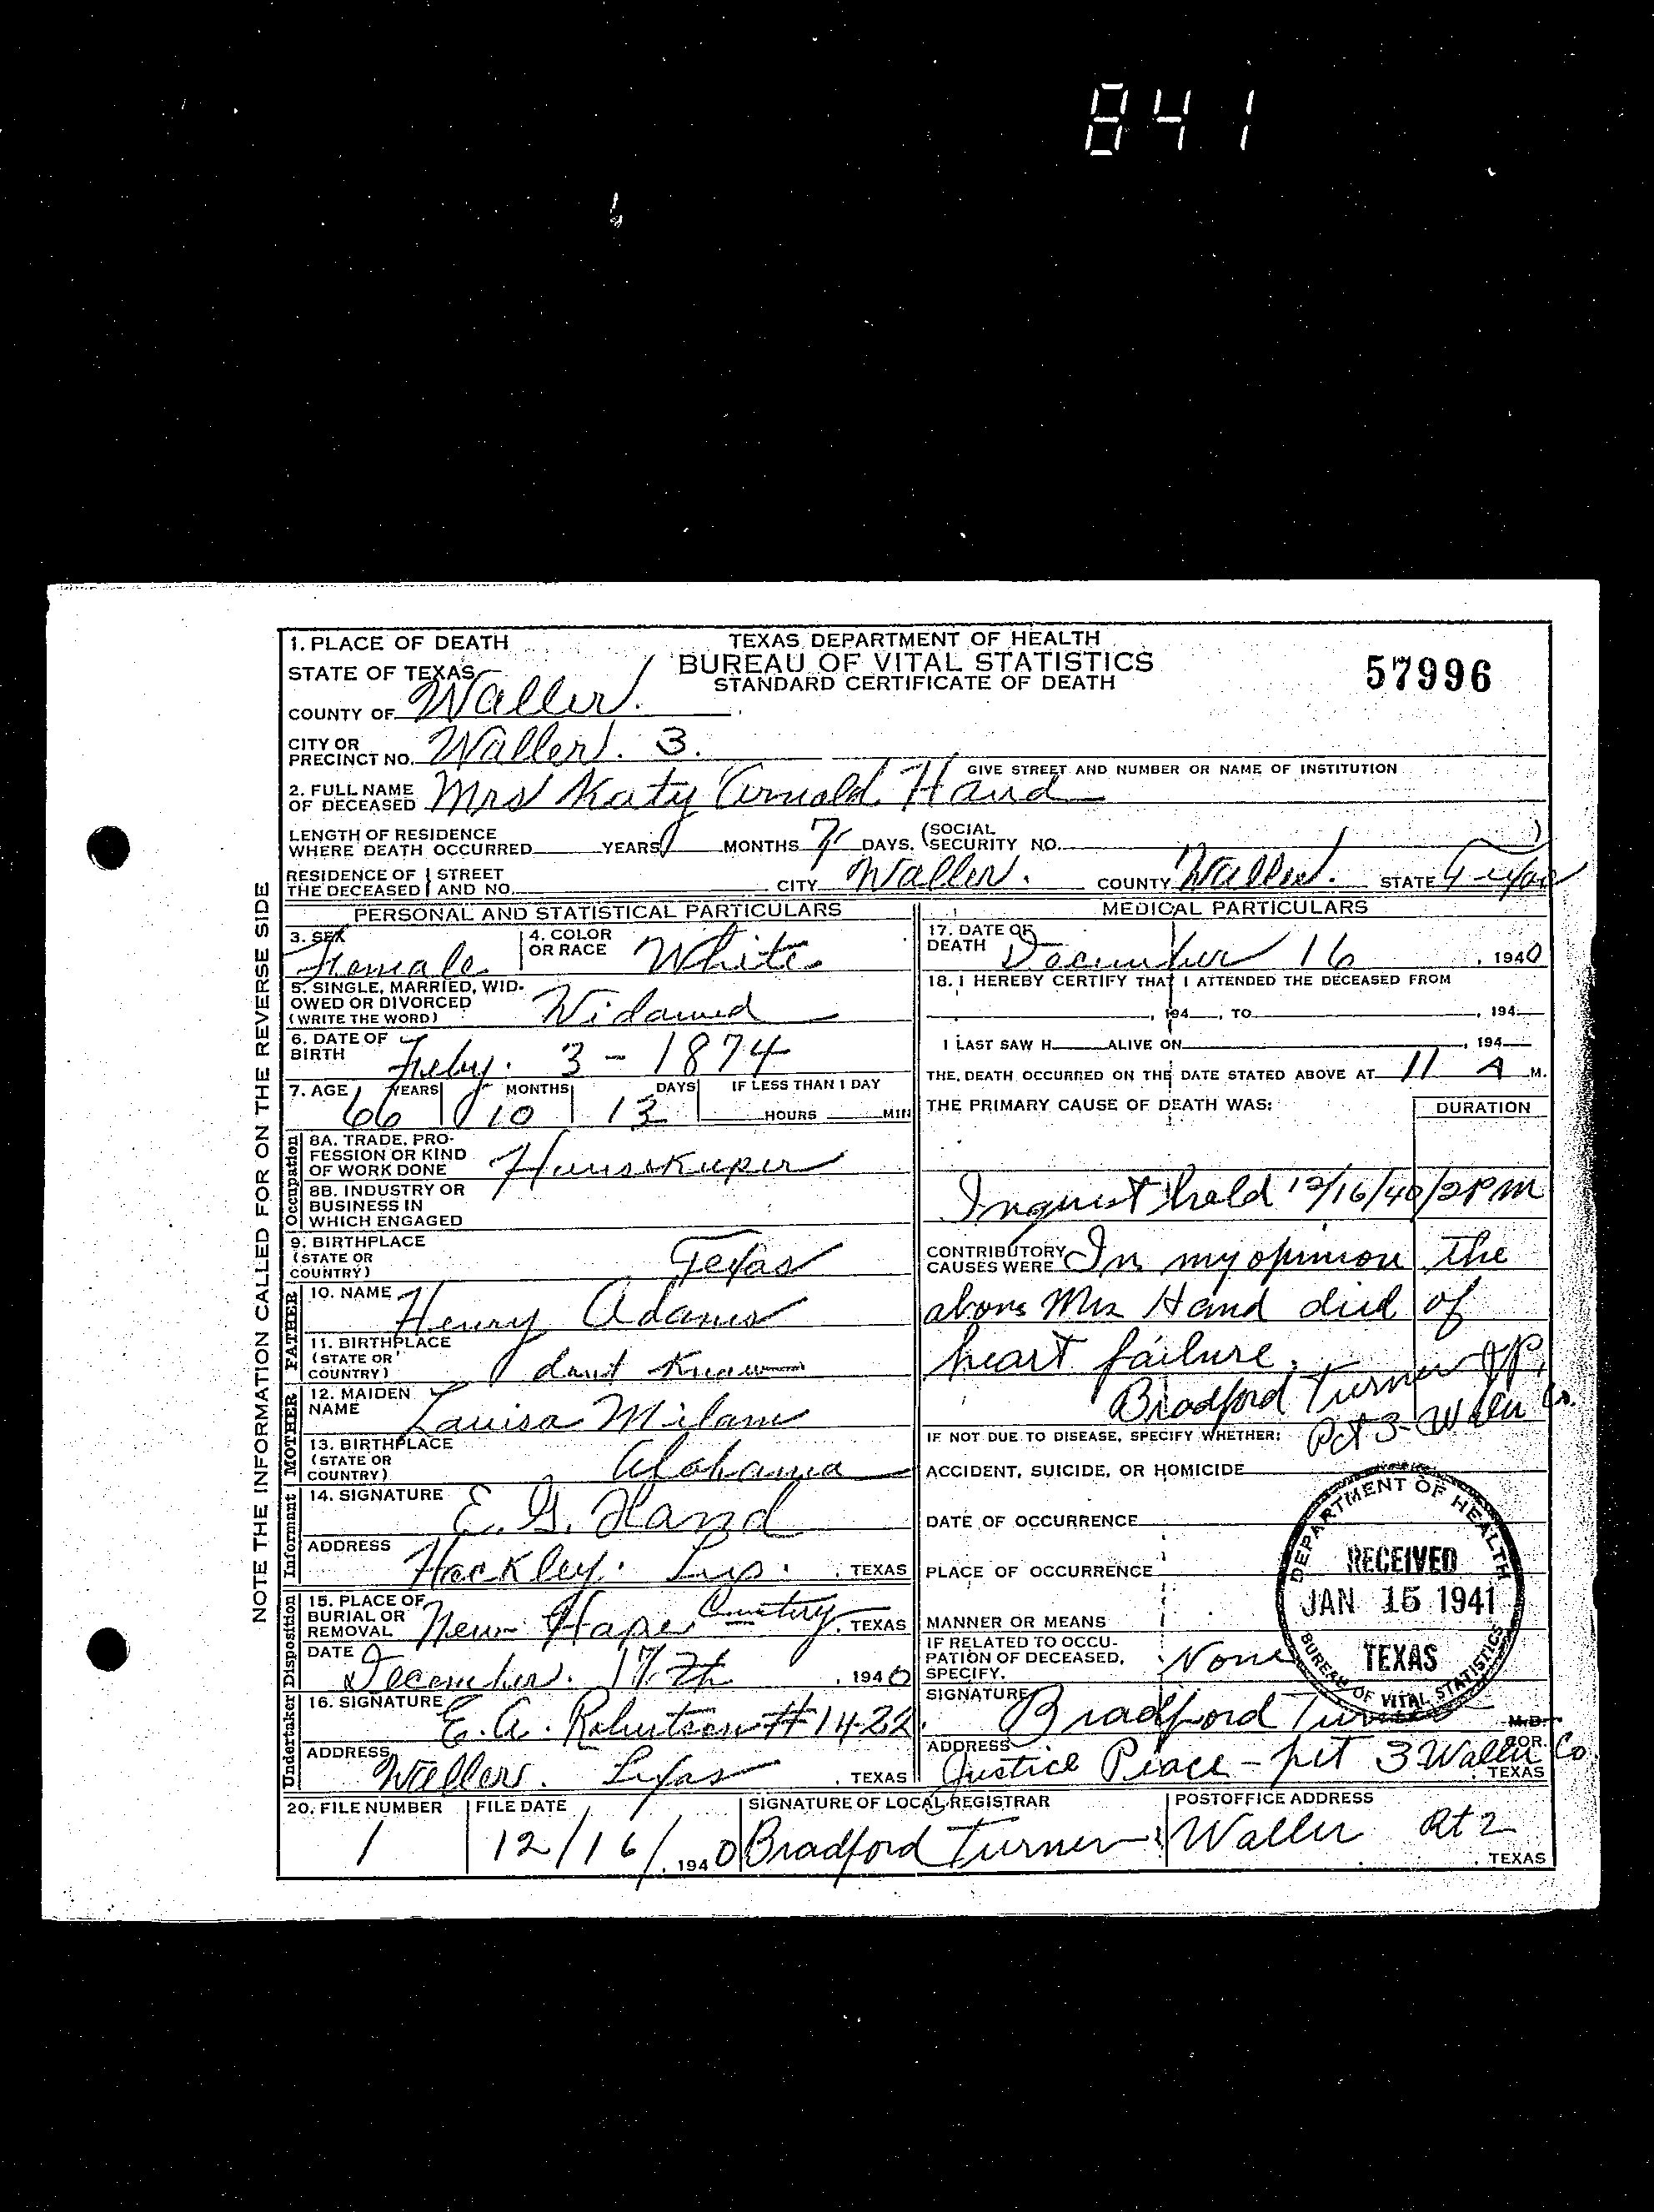 841
1. PLACE OF DEATH
TEXAS DEPARTMENT OF HEALTH
BUREAU OF VITAL STATISTICS
STANDARD CERTIFICATE OF DEATH
57996
STATE OF TEXAS
COUNTY OF Waller.
CITY OR PRECINCT NO. Waller. 3.
GIVE STREET AND NUMBER OR NAME OF INSTITUTION
2. FULL NAME OF DECEASED Mrs Katy Arnold Hand
LENGTH OF RESIDENCE WHERE DEATH OCCURRED YEARS MONTHS 7 DAYS. (SOCIAL SECURITY NO. )
RESIDENCE OF THE DECEASED STREET AND NO. CITY Waller. COUNTY Waller. STATE Texas
NOTE THE INFORMATION CALLED FOR ON THE REVERSE SIDE
PERSONAL AND STATISTICAL PARTICULARS
3. SEX Female
4. COLOR OR RACE White
5. SINGLE, MARRIED, WIDOWED OR DIVORCED (WRITE THE WORD) Widowed
6. DATE OF BIRTH Feby. 3 - 1874
7. AGE YEARS 66 MONTHS 10 DAYS 13 IF LESS THAN 1 DAY HOURS MIN
Occupation
8A. TRADE, PROFESSION OR KIND OF WORK DONE Housekeeper
8B. INDUSTRY OR BUSINESS IN WHICH ENGAGED
9. BIRTHPLACE (STATE OR COUNTRY) Texas
FATHER
10. NAME Henry Adams
11. BIRTHPLACE (STATE OR COUNTRY) dont Known
MOTHER
12. MAIDEN NAME Louisa Milam
13. BIRTHPLACE (STATE OR COUNTRY) Alabama
Informant
14. SIGNATURE E. G. Hand
ADDRESS Hockley. TEXAS
Disposition
15. PLACE OF BURIAL OR REMOVAL New Hope Cemetery, TEXAS
DATE December. 17th, 1940
Undertaker
16. SIGNATURE E. A. Robertson #1422.
ADDRESS Waller. Texas, TEXAS
MEDICAL PARTICULARS
17. DATE OF DEATH December 16, 1940
18. I HEREBY CERTIFY THAT I ATTENDED THE DECEASED FROM
, 194 , TO , 194
I LAST SAW H ALIVE ON , 194
THE DEATH OCCURRED ON THE DATE STATED ABOVE AT 11 A M.
THE PRIMARY CAUSE OF DEATH WAS: DURATION
Inquest held 12/16/40/2PM
CONTRIBUTORY CAUSES WERE In my opinion the
above Mrs Hand died of
heart failure.
Bradford Turner JP,
Pct 3- Waller Co.
IF NOT DUE TO DISEASE, SPECIFY WHETHER:
ACCIDENT, SUICIDE, OR HOMICIDE
DATE OF OCCURRENCE
PLACE OF OCCURRENCE
MANNER OR MEANS
IF RELATED TO OCCUPATION OF DECEASED, SPECIFY. None
DEPARTMENT OF HEALTH
RECEIVED
JAN 15 1941
TEXAS
BUREAU OF VITAL STATISTICS
SIGNATURE Bradford Turner M.D.
ADDRESS Justice Peace - pct 3 Waller Co. TEXAS
20. FILE NUMBER 1
FILE DATE 12/16/, 1940
SIGNATURE OF LOCAL REGISTRAR Bradford Turner
POSTOFFICE ADDRESS Waller Rt 2, TEXAS